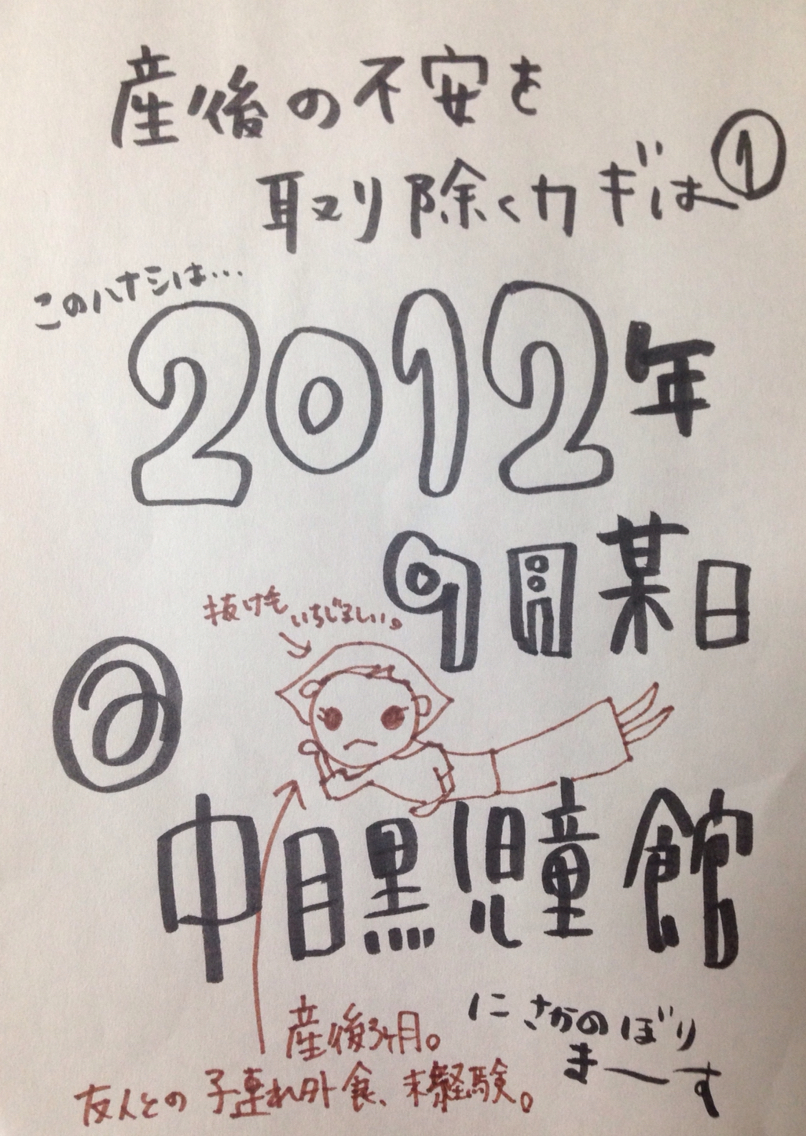 産後の不安を
取り除くカギは①
このハナシは…
2012年
9月某日
抜け毛いちじるしい。
@
中目黒児童館
にさかのぼり
ま〜す
産後3ヶ月。
友人との子連れ外食、未経験。